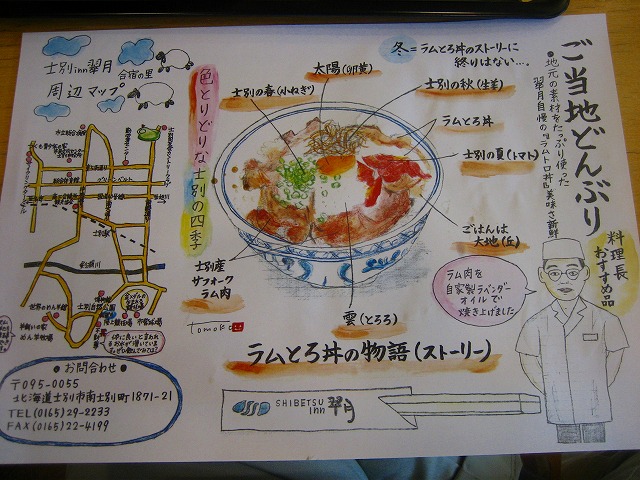 ご当地どんぶり
●地元の素材をたっぷり使った
翠月自慢の『ラムトロ丼』美味さ新鮮
料理長
おすすめ品
冬=ラムとろ丼のストーリーに
終りはない…。
太陽(卵黄)
士別の秋(生姜)
士別の春(小ねぎ)
ラムとろ丼
士別の夏(トマト)
ごはんは
大地(丘)
色とりどりな士別の四季
士別産
サフォーク
ラム肉
雲(とろろ)
tomoko
ラム肉を
自家製ラベンダー
オイルで
焼き上げました
ラムとろ丼の物語(ストーリー)
SHIBETSU
inn 翠月
士別inn翠月
合宿の里
周辺マップ
世界のめん羊館
羊飼いの家
めん羊牧場
●お問合わせ●
〒095-0055
北海道士別市南士別町1871-21
TEL(0165)29-2233
FAX(0165)22-4199